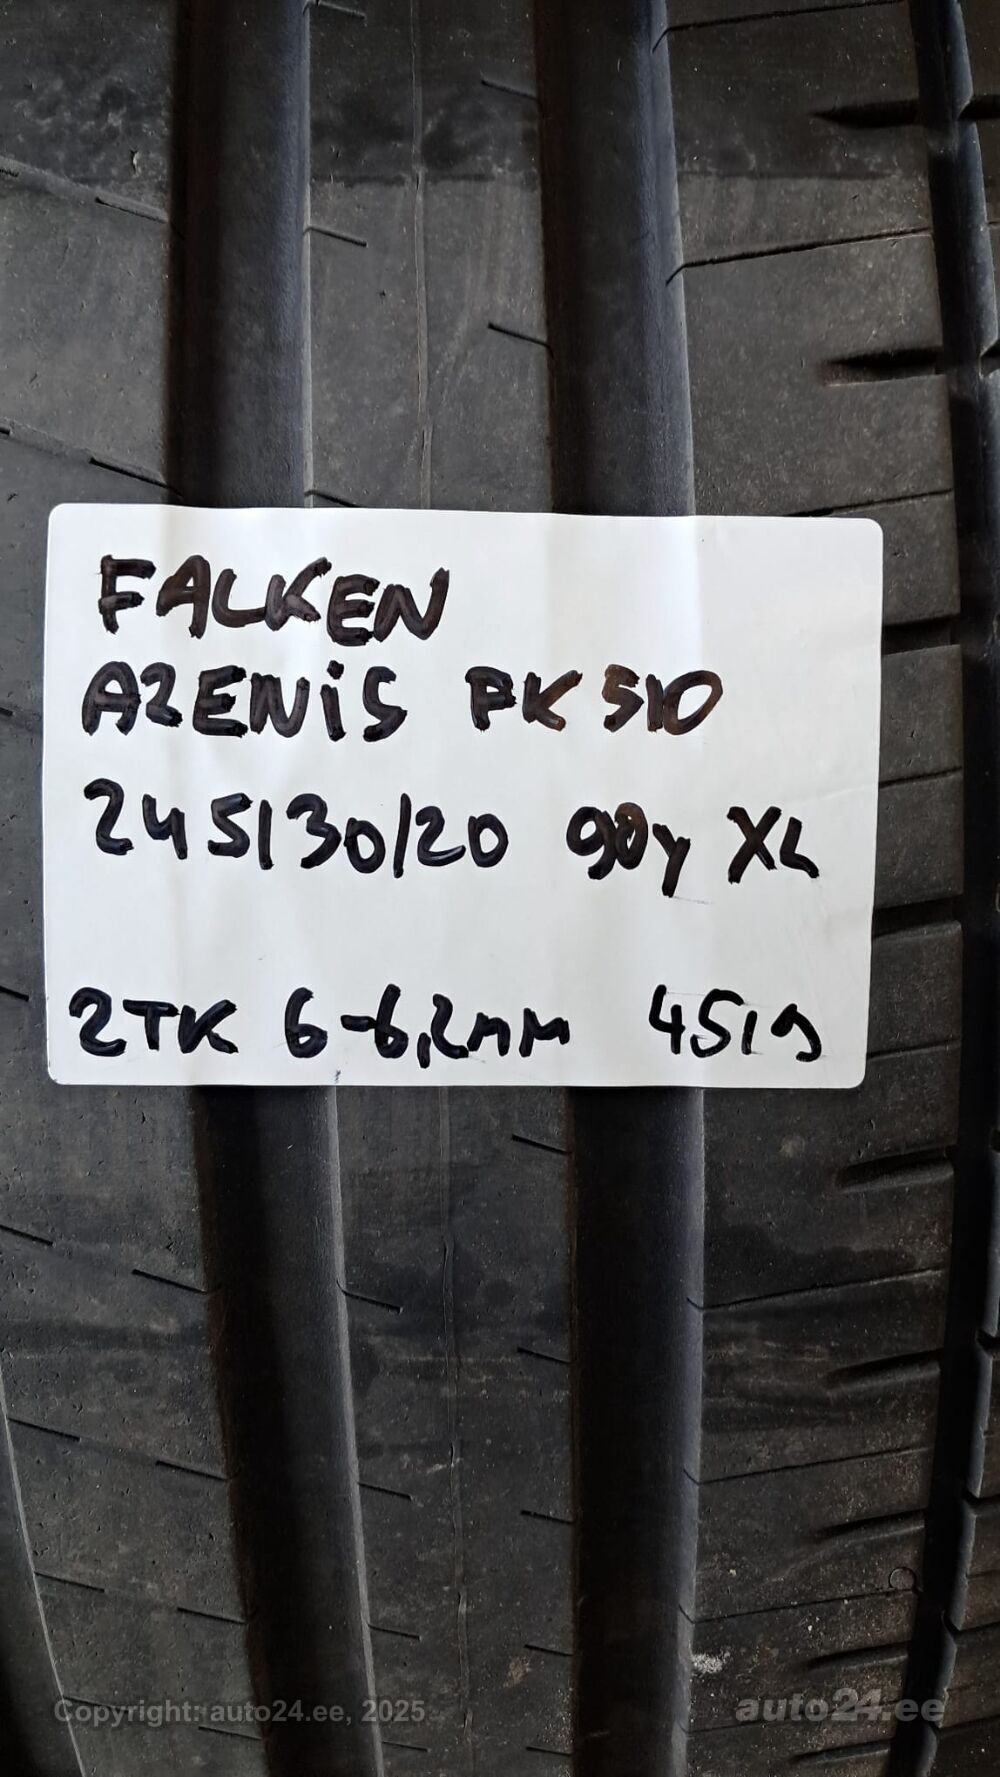 FALKEN
AZENiS FK510
245/30/20 90y XL
2TK 6-6,2mm 4519
Copyright: auto24.ee, 2025
auto24.ee